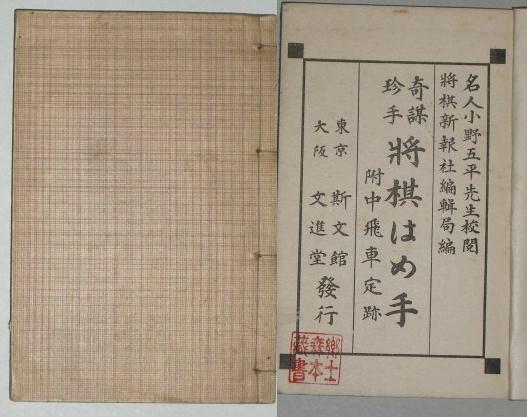 名人小野五平先生校閲
將棋新報社編輯局編
奇謀
珍手
將棋はめ手
附中飛車定跡
東京 斯文館
大阪 文進堂
發行